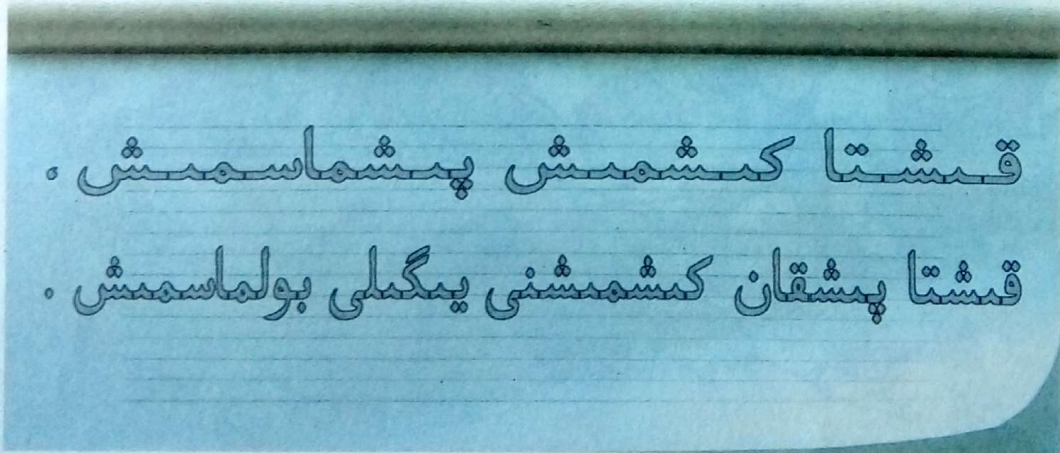 قىشتا كىشمىش پىشماسمىش .
قىشتا پىشقان كىشمىشنى يىگىلى بولماسمىش .